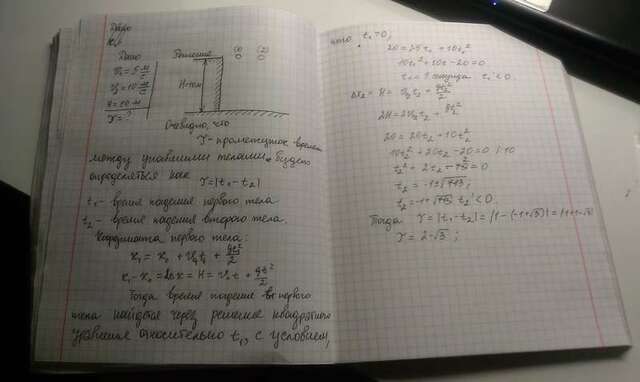 Дано
Дано
Решение
(1) (2)
V₁ = 5 м/с
V₂ = 10 м/с
H = 10 м
τ - ?
Очевидно, что
τ - промежуток времени
между упавшими телами будет
определяться как
τ = |t₁ - t₂|
t₁ - время падения первого тела
t₂ - время падения второго тела.
Координата первого тела:
x₁ = x₀ + V₁t₁ + gt₁²/2
x₁ - x₀ = Δx = H = V₁t + gt²/2
Тогда время падения первого
тела найдется через решение квадратного
уравнения относительно t₁, с условием,
что t₁ > 0,
10t₁² + 10t - 20 = 0
t₁ = 1 секунда t₁' < 0.
Δx₂ = H = V₂t₂ + gt₂²/2
2H = 2V₂t₂ + gt₂²
20 = 20t₂ + 10t₂²
10t₂² + 20t₂ - 20 = 0 |:10
t₂' < 0.
Тогда τ = |t₁ - t₂| = |1 - (-1+√3)| = |1+1-√3|
τ = 2-√3;